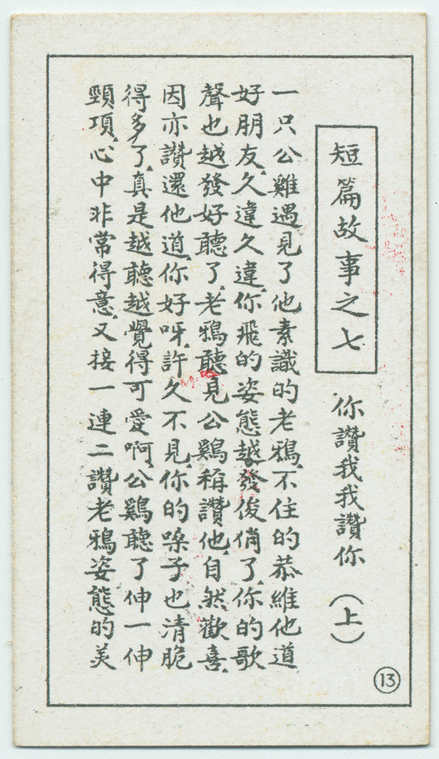 短篇故事之七
你讚我我讚你(上)
一只公雞遇見了他素識的老鴉、不住的恭維他道
好朋友、久違久違、你飛的姿態越發俊俏了、你的歌
聲也越發好聽了、老鴉聽見公鷄稱讚他、自然歡喜、
因亦讚還他道、你好呀、許久不見、你的嗓子也清脆
得多了、真是越聽越覺得可愛啊、公鷄聽了伸一伸
頸項、心中非常得意、又接一連二讚老鴉姿態的美
13